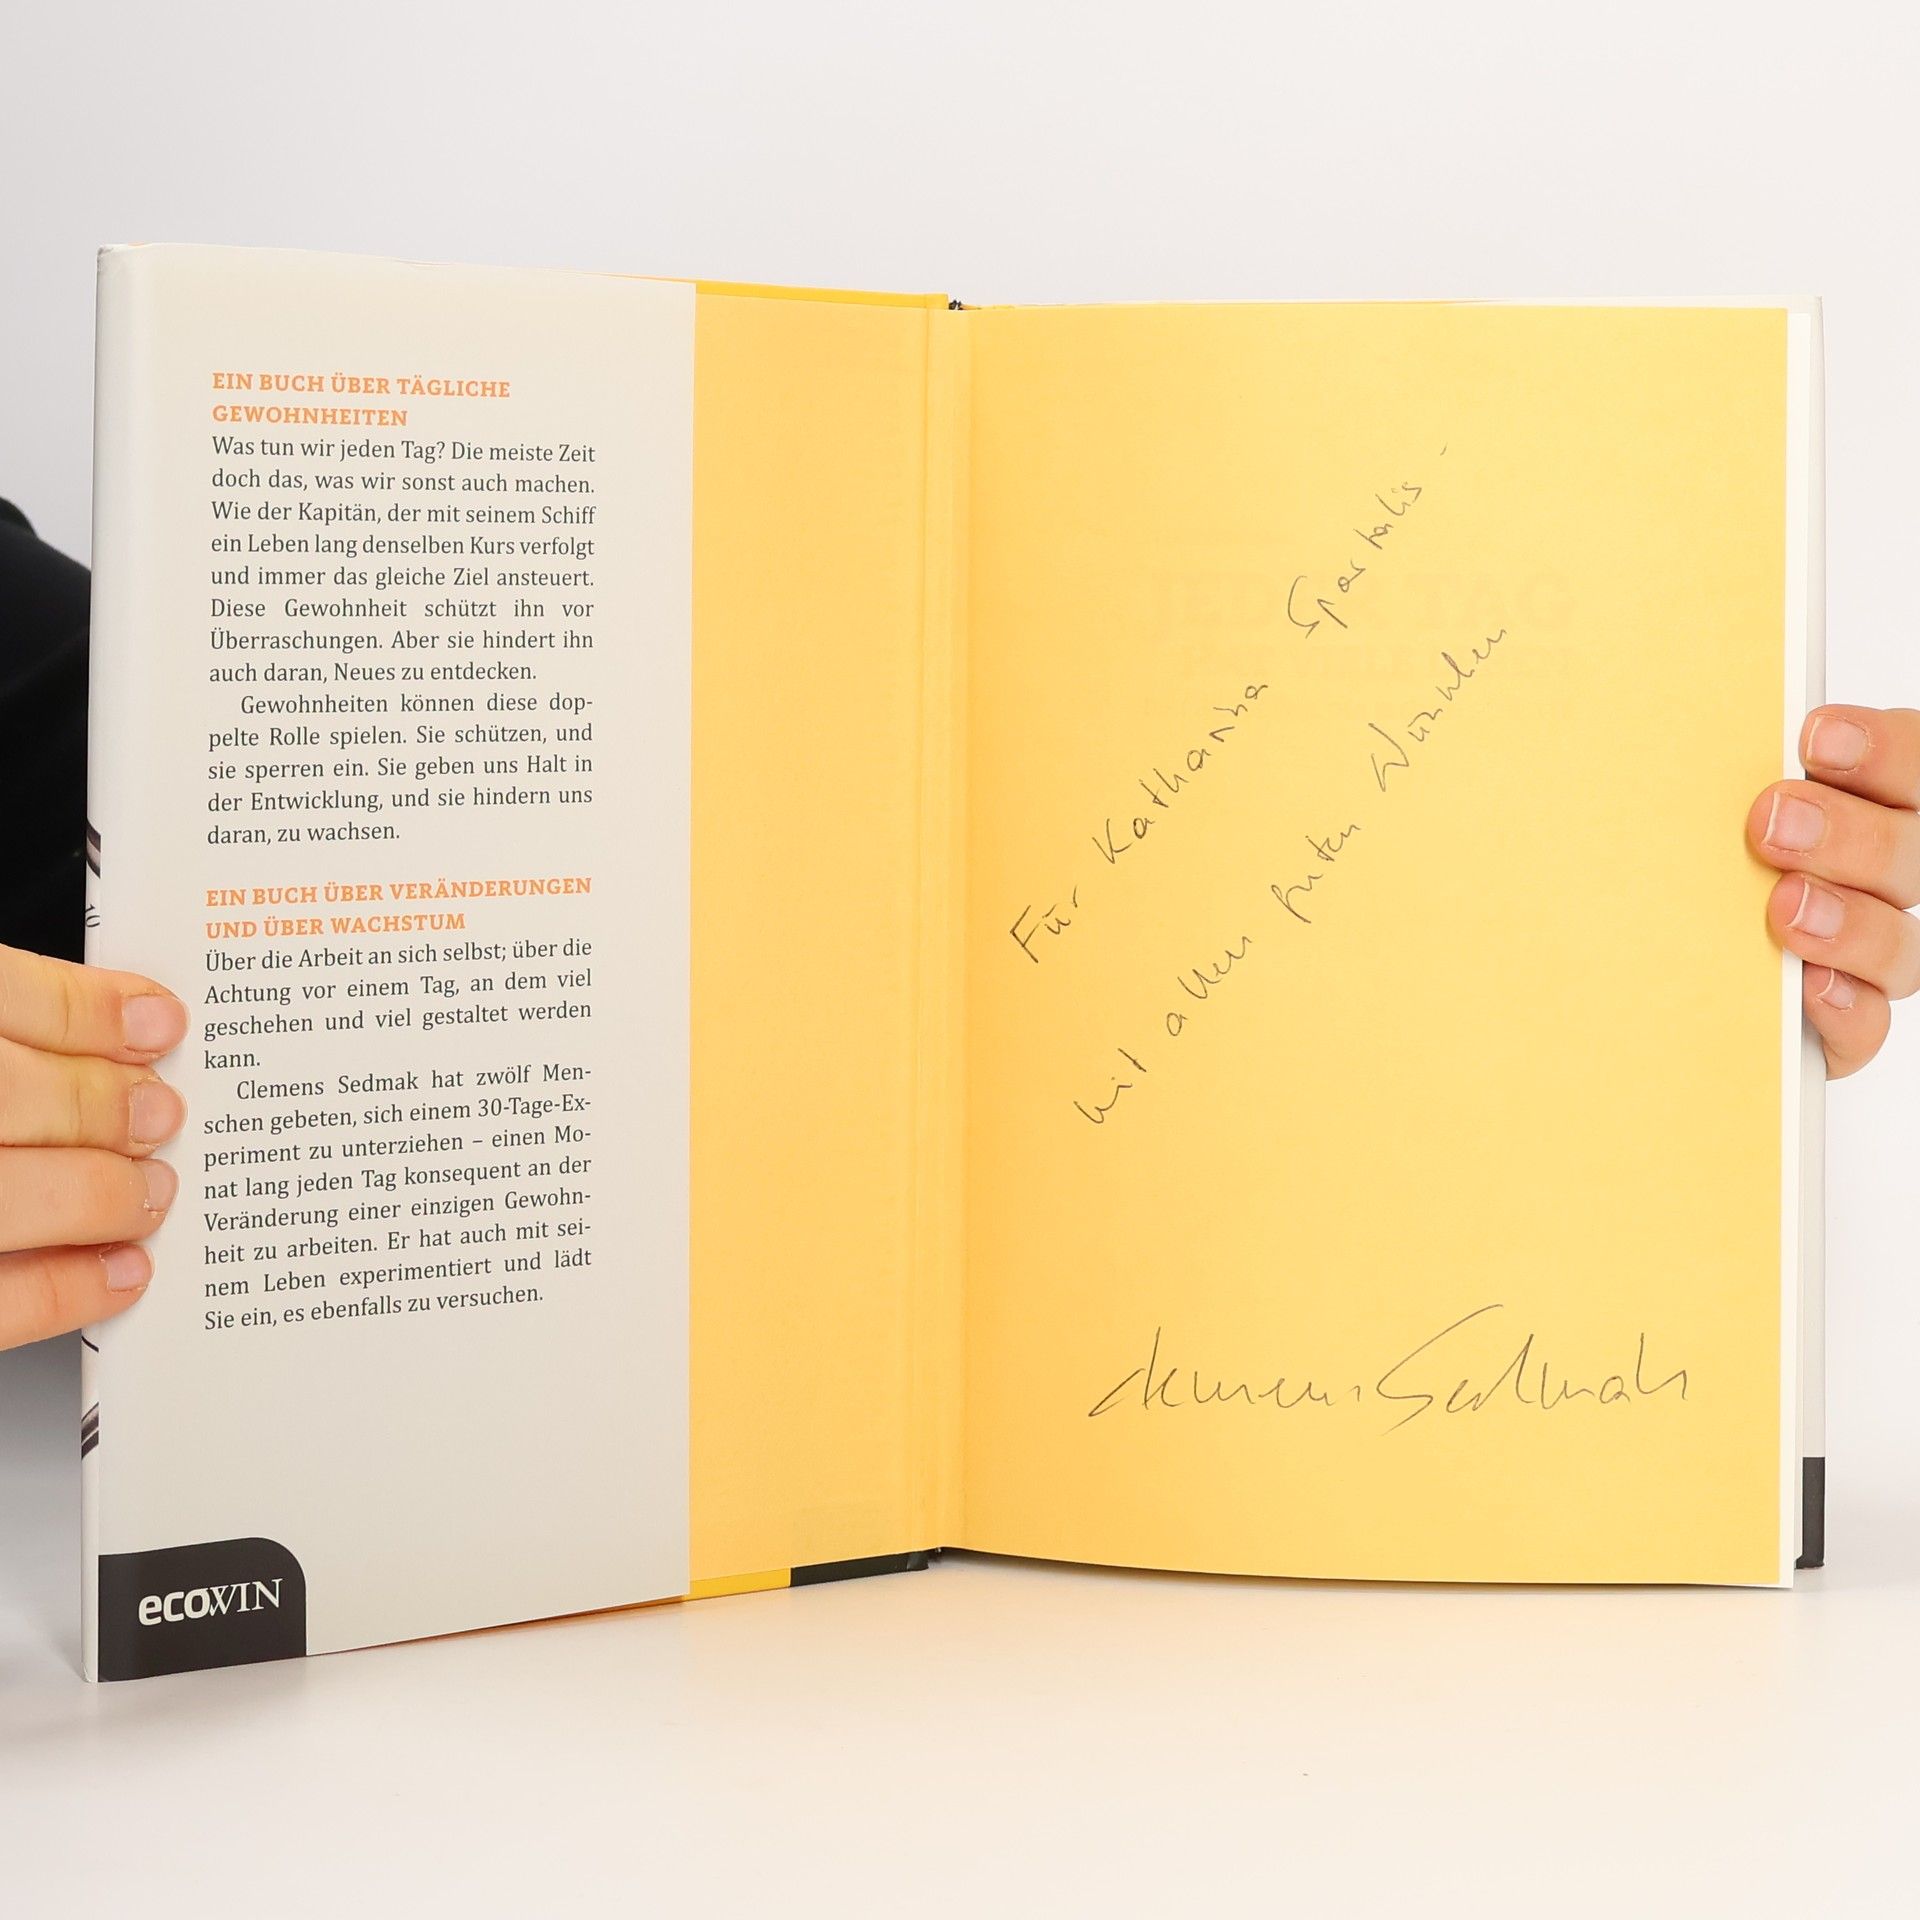 EIN BUCH ÜBER TÄGLICHE
GEWOHNHEITEN
Was tun wir jeden Tag? Die meiste Zeit
doch das, was wir sonst auch machen.
Wie der Kapitän, der mit seinem Schiff
ein Leben lang denselben Kurs verfolgt
und immer das gleiche Ziel ansteuert.
Diese Gewohnheit schützt ihn vor
Überraschungen. Aber sie hindert ihn
auch daran, Neues zu entdecken.
Gewohnheiten können diese dop-
pelte Rolle spielen. Sie schützen, und
sie sperren ein. Sie geben uns Halt in
der Entwicklung, und sie hindern uns
daran, zu wachsen.
EIN BUCH ÜBER VERÄNDERUNGEN
UND ÜBER WACHSTUM
Über die Arbeit an sich selbst; über die
Achtung vor einem Tag, an dem viel
geschehen und viel gestaltet werden
kann.
Clemens Sedmak hat zwölf Men-
schen gebeten, sich einem 30-Tage-Ex-
periment zu unterziehen – einen Mo-
nat lang jeden Tag konsequent an der
Veränderung einer einzigen Gewohn-
heit zu arbeiten. Er hat auch mit sei-
nem Leben experimentiert und lädt
Sie ein, es ebenfalls zu versuchen.
ecoWIN
Für Katharina
mit allen guten Wünschen
Clemens Sedmak